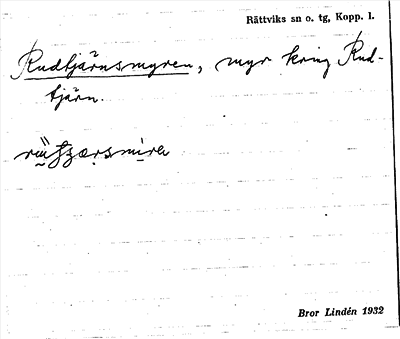 Rättviks sn o. tg, Kopp. l.
Rudtjärnsmyren, myr kring Rud-
tjärn.
Bror Lindén 1932